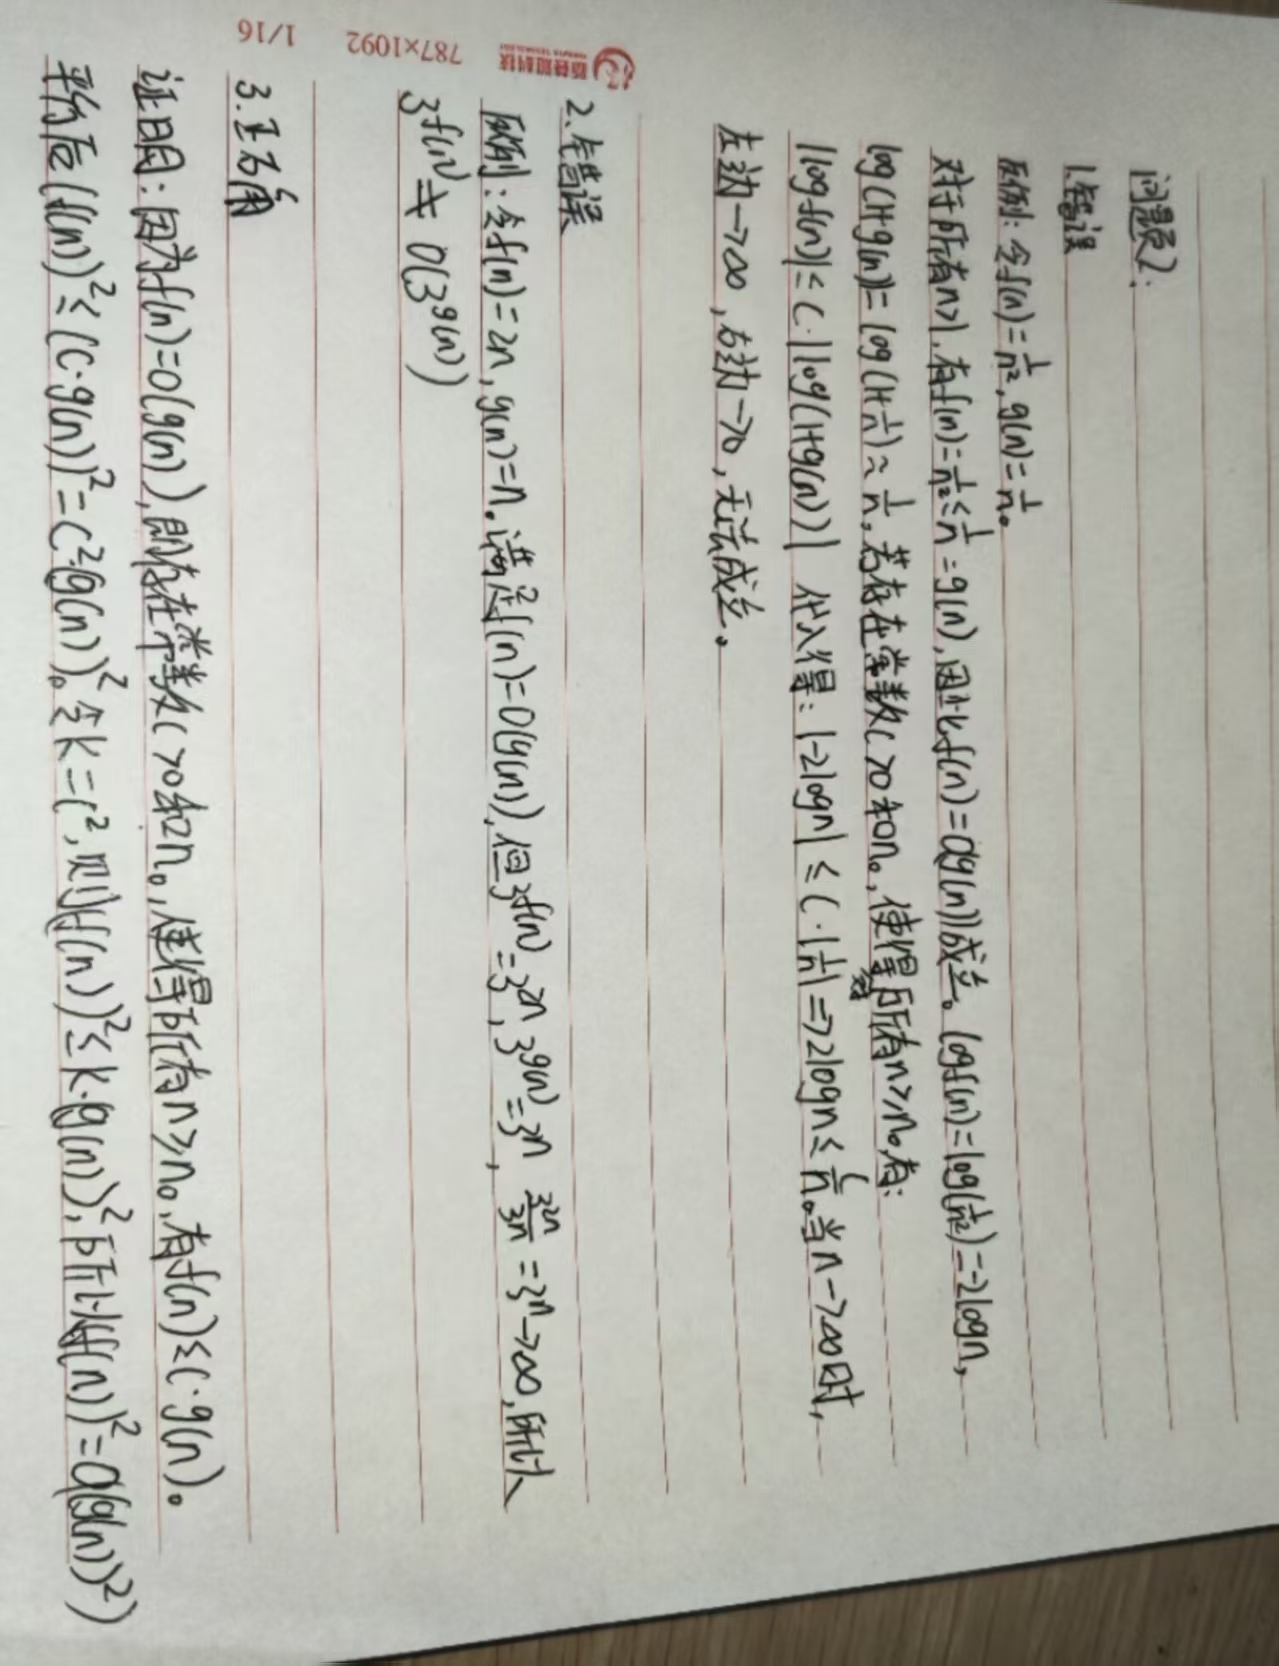 问题2:
1.错误
反例: 令f(n)=1/n², g(n)=1/n。
对于所有n>1, 有f(n)=1/n²≤1/n=g(n), 因此f(n)=O(g(n))成立。logf(n)=log(1/n²)=-2logn,
log(1+g(n))=log(1+1/n)≈1/n, 若存在常数C>0和n₀, 使得对所有n≥n₀有:
|logf(n)|≤C·|log(1+g(n))| 代入得: |-2logn|≤C·|1/n|⇒2logn≤C/n。当n→∞时,
左边→∞, 右边→0, 无法成立。
2.错误
反例: 令f(n)=2n, g(n)=n。满足f(n)=O(g(n)), 但3^f(n)=3^2n, 3^g(n)=3^n, 3^2n/3^n=3^n→∞, 所以
3^f(n)≠O(3^g(n))
3.正确
证明: 因为f(n)=O(g(n)), 即存在常数C>0和n₀, 使得所有n≥n₀, 有f(n)≤C·g(n)。
平方后(f(n))²≤(C·g(n))²=C²(g(n))²。令K=C², 则(f(n))²≤K·(g(n))², 所以(f(n))²=O((g(n))²)
787×1092
1/16